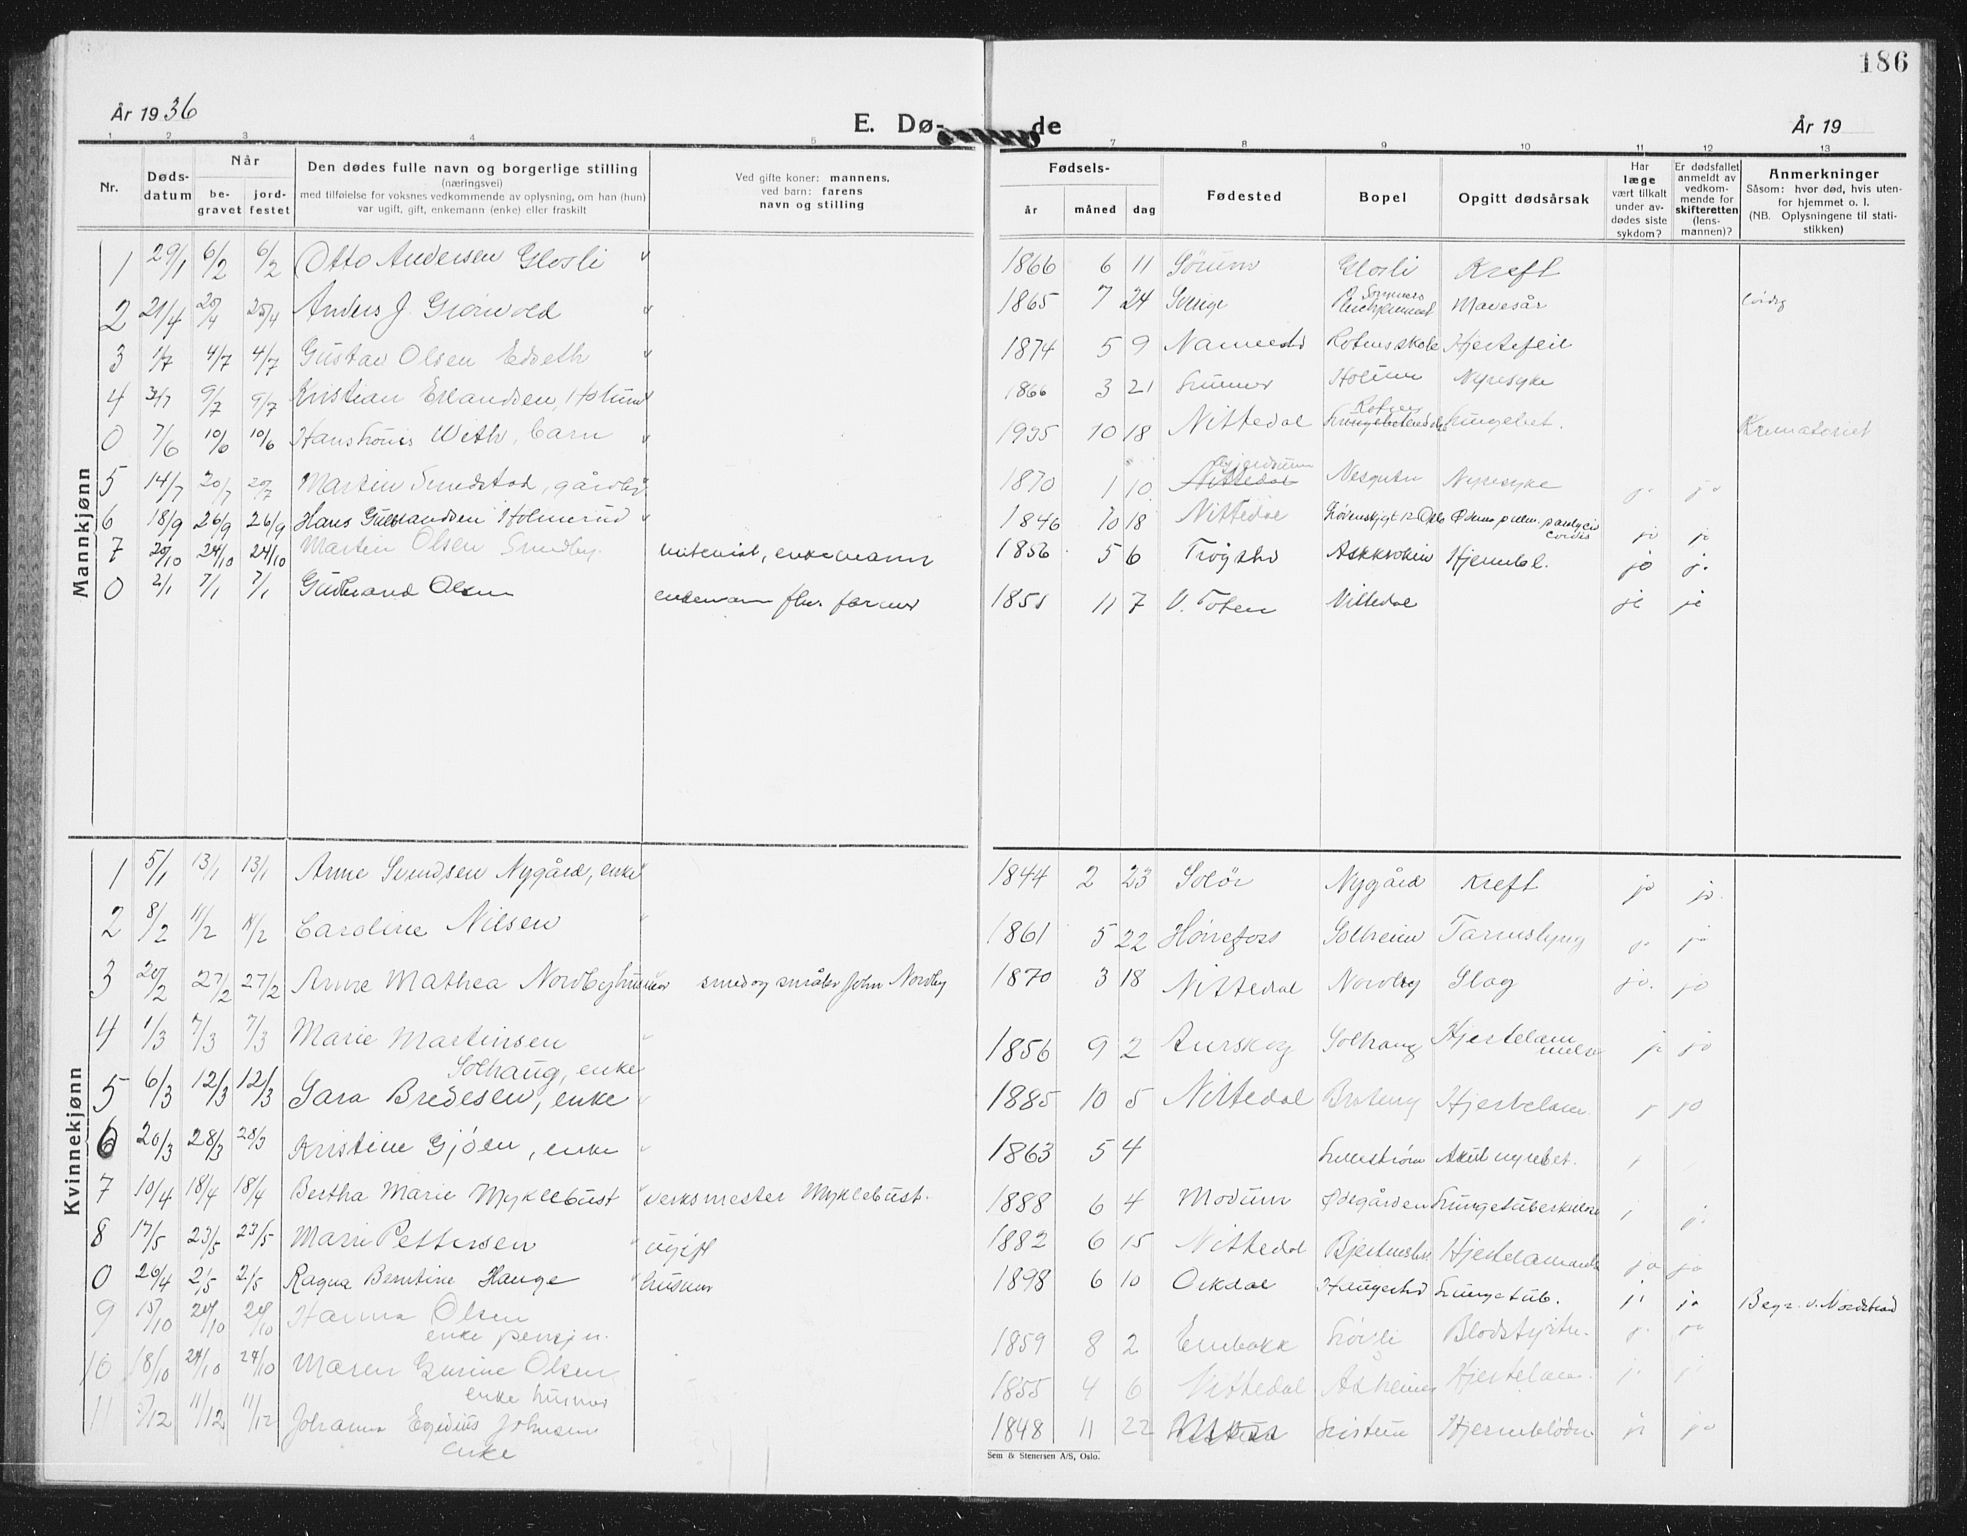 186
År 1936
E. Dø- de
År 19
1 2 3 4 5 7 8 9 10 11 12 13
Nr.
Døds-datum
Når
be-gravet
jord-festet
Den dødes fulle navn og borgerlige stilling
(næringsvei)
med tilføielse for voksnes vedkommende av oplysning, om han (hun)
var ugift, gift, enkemann (enke) eller fraskilt
Ved gifte koner: mannens,
ved barn: farens
navn og stilling
Fødsels-
år måned dag
Fødested
Bopel
Opgitt dødsårsak
Har
læge
vært tilkalt
under av-
dødes siste
sykdom?
Er dødsfallet
anmeldt av
vedkom-
mende for
skifteretten
(lens-
mannen)?
Anmerkninger
Såsom: hvor død, hvis uten-
for hjemmet o. l.
(NB. Oplysningene til stati-
stikken)
Mannkjønn
1 29/1 6/2 6/2 Otto Andersen Glosli " 1866 6 11 Sørum Glosli Kreft
2 21/4 25/4 Anders J. Grønvold " 1865 7 24 Sverige Mavesår
3 1/7 4/7 4/7 Gustav Olsen Edseth " 1874 5 9 Rotnes skole Hjertefeil
4 9/7 9/7 Kristian Erlandsen, Holum 1866 3 21 Lunner Holum Nyresyke
0 7/6 10/6 10/6 Hans Weth, barn " 1935 10 18 Nittedal Rotnes Lungebet. Krematoriet
5 14/7 20/7 20/7 Martin Smedstad, gårdbr. 1870 1 10 Gjerdrum Nittedal Nyresyke ja ja
6 18/9 26/9 26/9 Hans Gulbrandsen Holmerud " 1846 10 18 Nittedal Løvenskjgt 12 Oslo Ødema pulm. paralysis cordis ja ja
7 20/10 24/10 24/10 Martin Olsen Smedby. enkemann 1856 5 6 Trøgstad Hjernebl. ja ja
0 2/1 7/1 7/1 Gudbrand Olsen enkemann fhv. former 1851 11 7 V. Toten Nittedal ja ja
Kvinnekjønn
1 5/1 13/1 13/1 Anne Svendsen Nygård, enke " 1844 2 23 Solør Nygård Kreft ja ja.
2 8/2 11/2 11/2 Caroline Nilsen " 1861 5 22 Hønefoss Solheim Tarmslyng ja ja
3 20/2 27/2 27/2 Anne Mathea Nordby husmor smed og småbr. John Nordby 1870 3 18 Nittedal Nordby Slag ja. ja
4 1/3 7/3 7/3 Marie Martinsen " 1856 9 2 Aurskog Solhaug Hjertelammelse ja ja
Solhaug, enke
5 6/3 12/3 12/3 Sara Bredesen, enke " 1885 10 5 Nittedal Hjertelam. j ja
6 20/3 28/3 28/3 Kristine Gjøen, enke " 1863 5 4 Lillestrøm Akut nyrebet. j
7 10/4 18/4 18/4 Bertha Marie Myklebust " verksmester Myklebust. 1888 6 4 Modum Ødegården Lungetuberkulose j ja
8 17/5 23/5 23/5 Marie Pettersen " ugift 1882 6 15 Nittedal Hjertelammelse ja ja
0 26/4 2/5 2/5 Ragna Berntine Hauge " husmor 1898 6 10 Orkdal Haugerstad Lungetub. ja ja Begr. v. Nordstrand
9 15/10 20/10 20/10 Hanna Olsen 1859 8 2 Enebakk Løvli Blodstyrtn. ja ja
enke pensjn.
10 18/10 24/10 24/10 Maren Gurine Olsen 1855 4 6 Nittedal Åsheim Hjertelam. ja ja
enke husmor
11 5/12 11/12 11/12 Johanna Egidius Johnsen 1848 11 22 Hjerneblødn ja ja
enke
Sem & Stenersen A/S, Oslo.